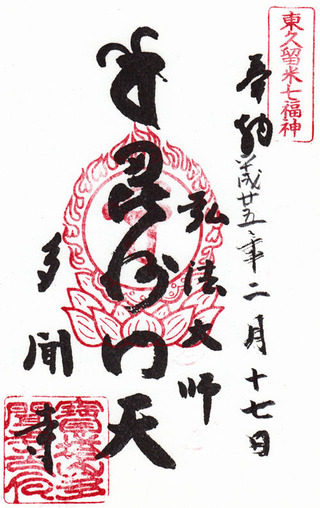 東久留米七福神
奉納 平成廿五年二月十七日
弘法大師
毘沙門天
多聞寺